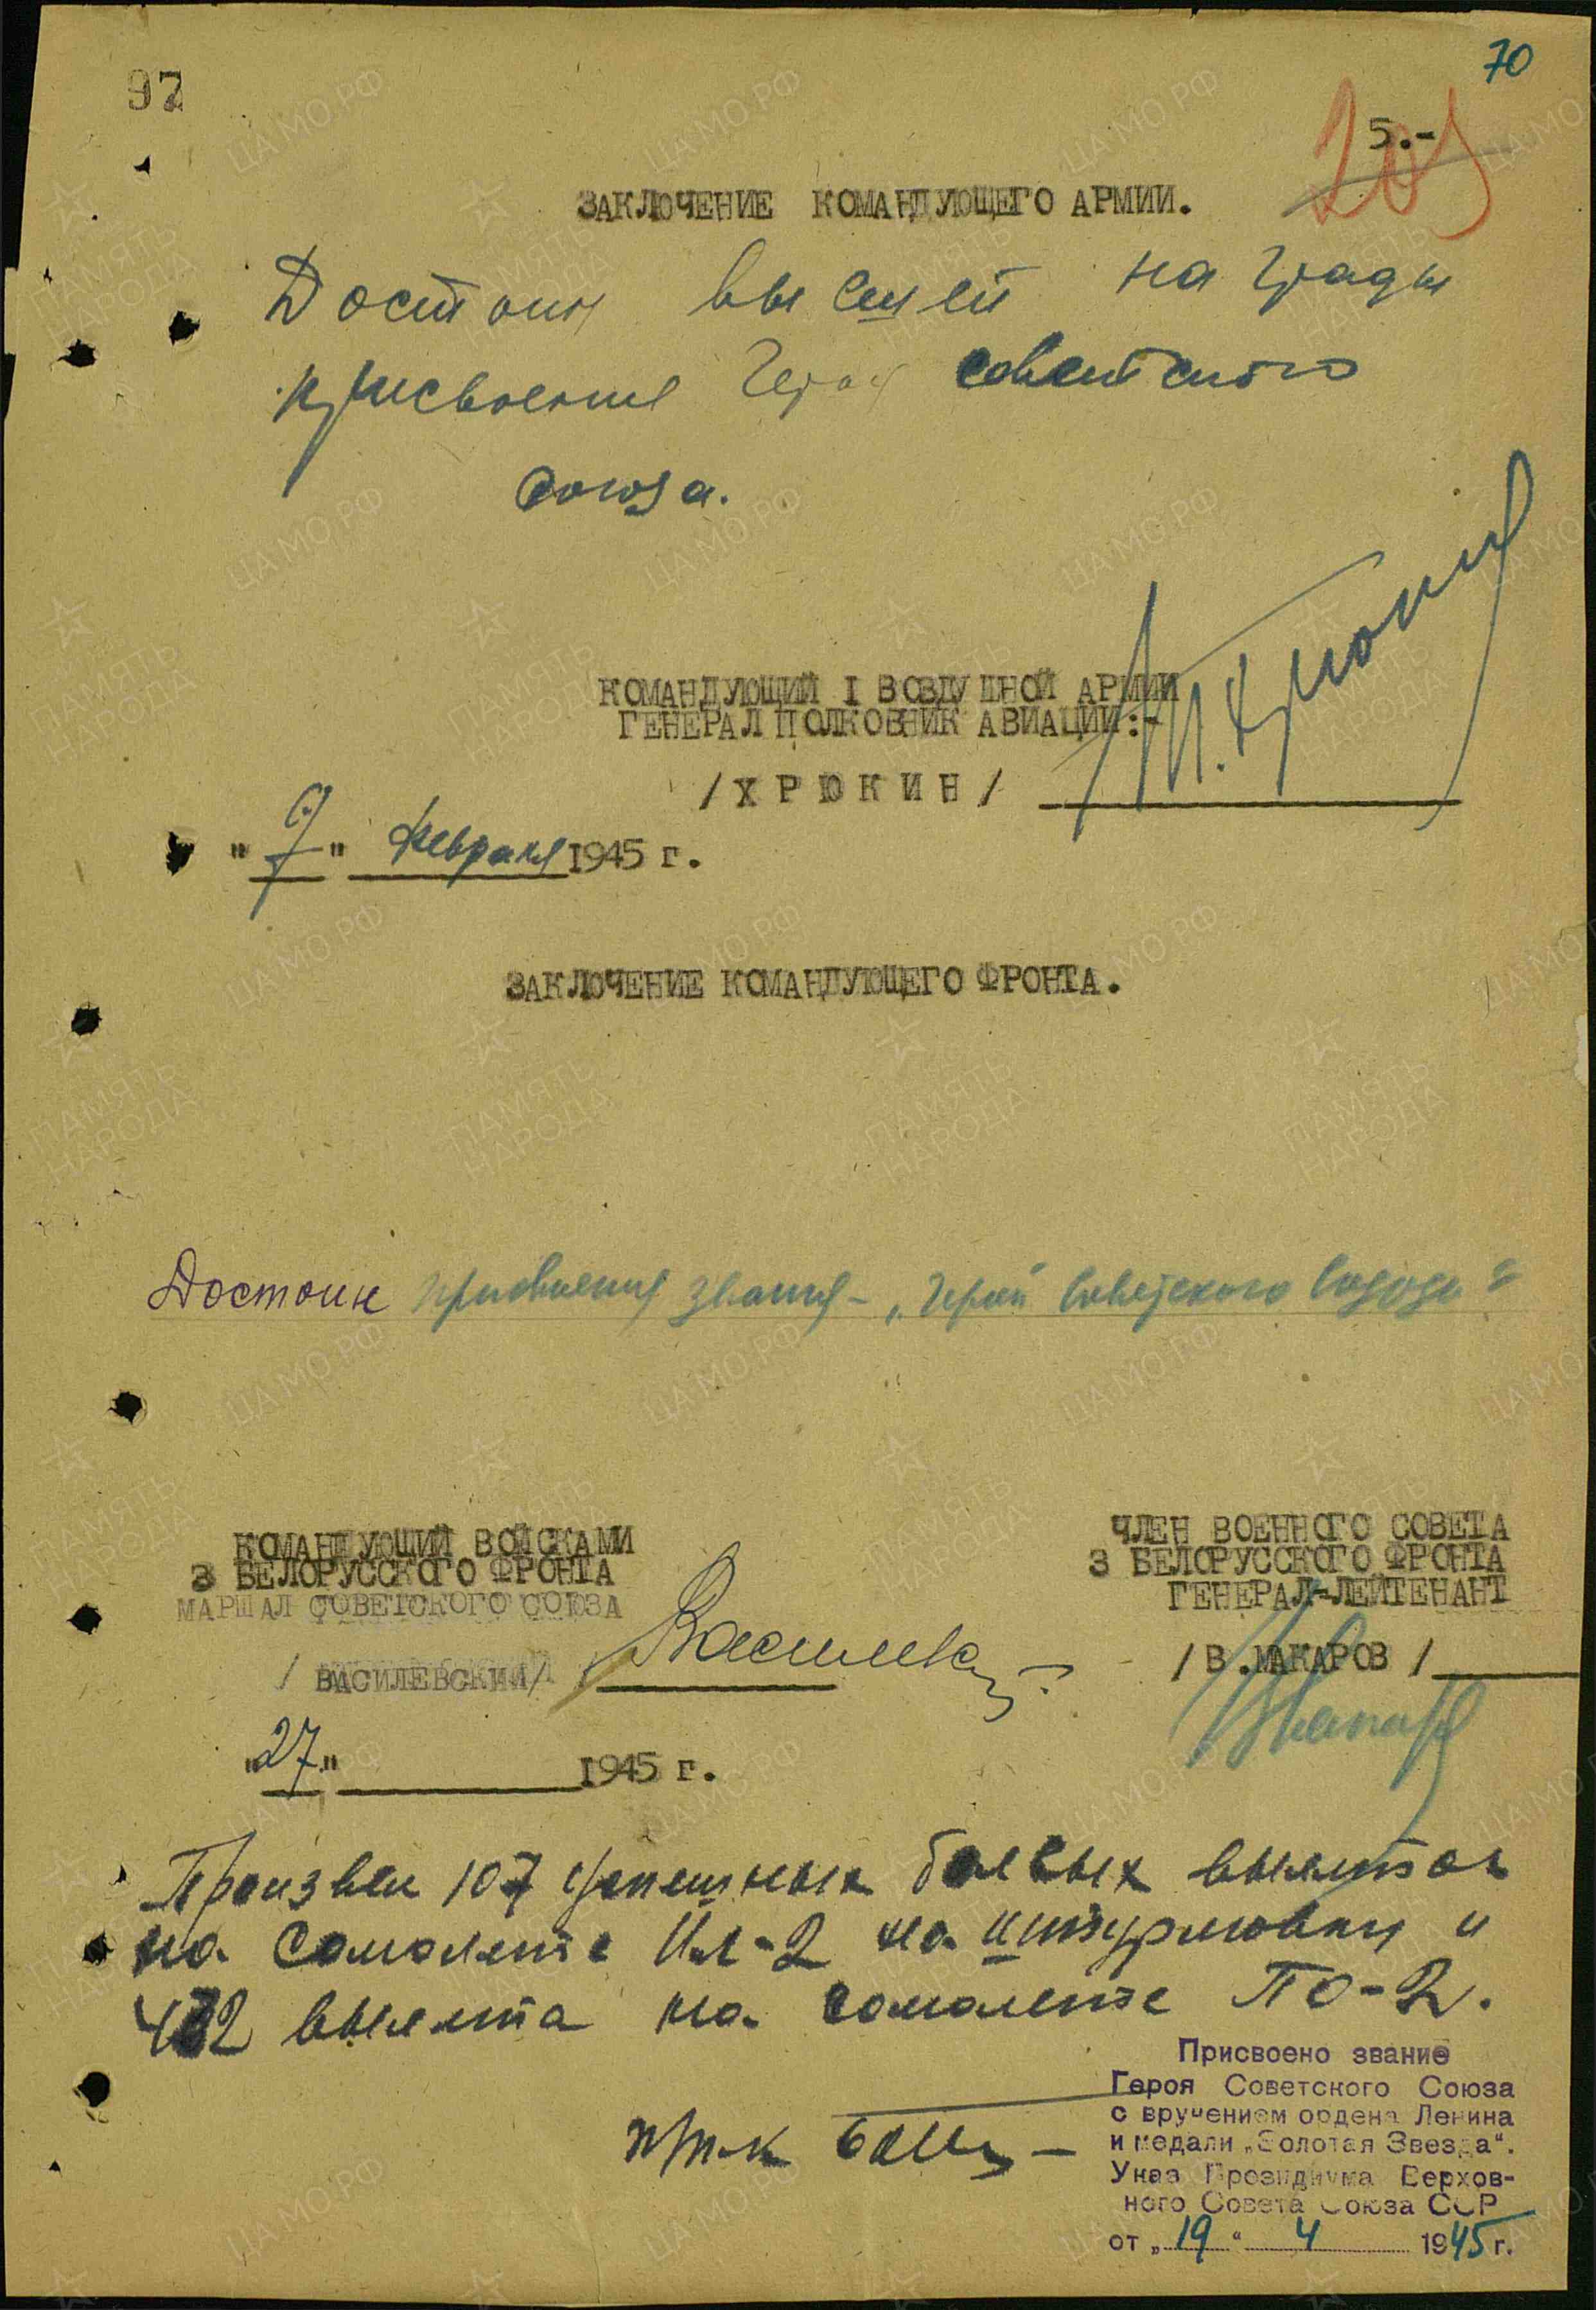 97
70
5.-
205
ЗАКЛЮЧЕНИЕ КОМАНДУЮЩЕГО АРМИИ.
Достоин высшей награды
присвоения Героя советского
союза.
КОМАНДУЮЩИЙ I ВОЗДУШНОЙ АРМИИ
ГЕНЕРАЛ ПОЛКОВНИК АВИАЦИИ:-
/ХРЮКИН/
Т. Хрюкин
"9" февраля 1945 г.
ЗАКЛЮЧЕНИЕ КОМАНДУЮЩЕГО ФРОНТА.
Достоин присвоения звания - „Герой Советского Союза"
КОМАНДУЮЩИЙ ВОЙСКАМИ
3 БЕЛОРУССКОГО ФРОНТА
МАРШАЛ СОВЕТСКОГО СОЮЗА
/ВАСИЛЕВСКИЙ/
ЧЛЕН ВОЕННОГО СОВЕТА
3 БЕЛОРУССКОГО ФРОНТА
ГЕНЕРАЛ-ЛЕЙТЕНАНТ
/В.МАКАРОВ/
"27" 1945 г.
Произвел 107 успешных боевых вылетов
на самолете Ил-2 на штурмовку и
432 вылета на самолете ПО-2.
Присвоено звание
Героя Советского Союза
с вручением ордена Ленина
и медали „Золотая Звезда".
Указ Президиума Верхов-
ного Совета Союза ССР
от „19" 4 1945 г.
ЦАМО.РФ
ПАМЯТЬ НАРОДА